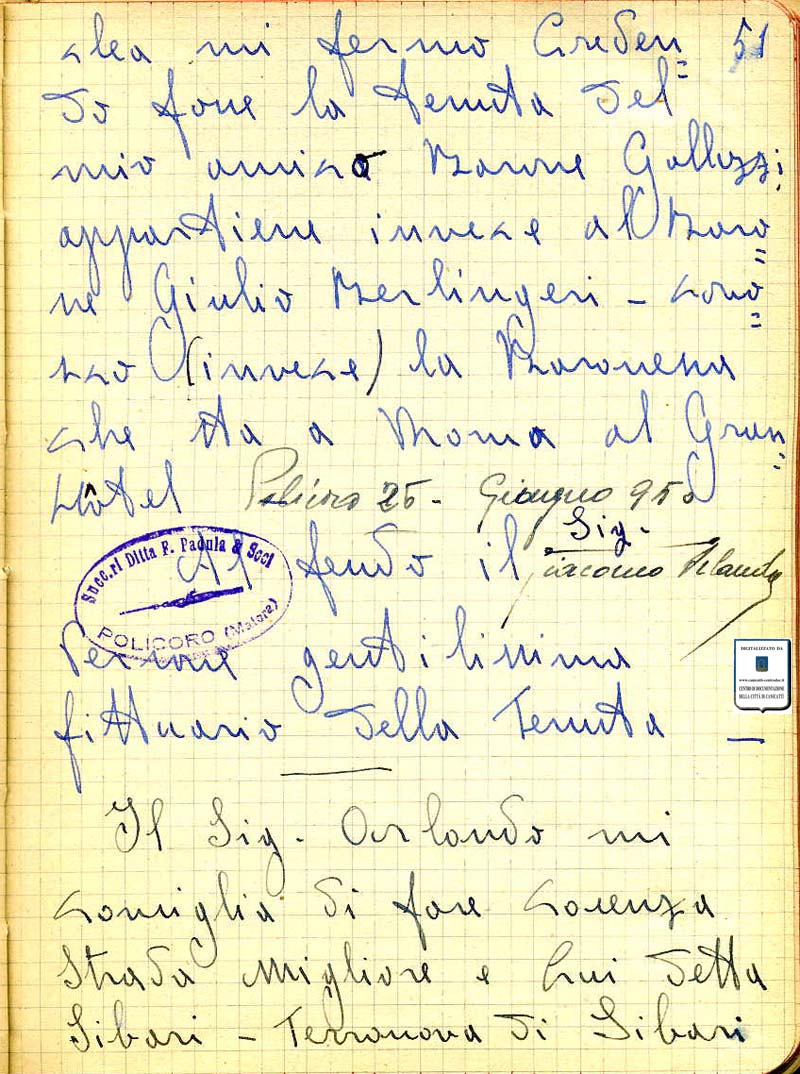 clea mi fermo Creden= 51
do fosse la tenuta del
mio amico Barone Galluzzi,
appartiene invece al Baro=
ne Giulio Berlingeri - cono=
sco (invece) la Baronessa
che sta a Roma al Gran=
Hôtel Policoro 25 - Giugno 950
Al fendo il Sig.
Giacomo
Succ.ri Ditta F. Padula & Soci
POLICORO (Matera)
Persone gentilissima
fittuario della Tenuta —
Il Sig. Orlando mi
consiglia di fare Cosenza
Strada Migliore e Qui detta
Sibari - Terranova di Sibari
DIGITALIZZATO DA
www.canicatti-centrodoc.it
CENTRO DI DOCUMENTAZIONE
DELLA CITTÀ DI CANICATTÌ